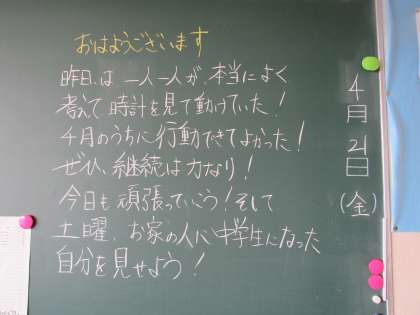 おはようございます
昨日は一人一人が、本当によく
考えて時計を見て動けていた！
4月のうちに行動できてよかった！
ぜひ、継続は力なり！
今日も頑張っていこう！そして
土曜、お家の人に中学生になった
自分を見せよう！
4月21日(金)